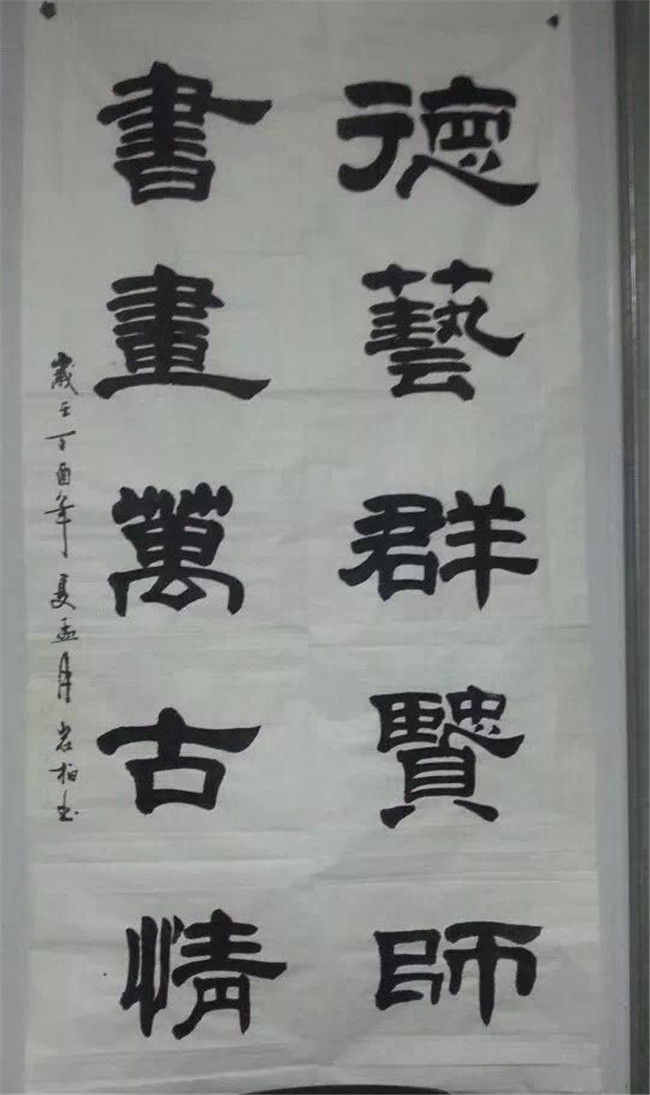 德藝群賢師
書畫萬古情
歲在丁酉年夏孟月岩柏书